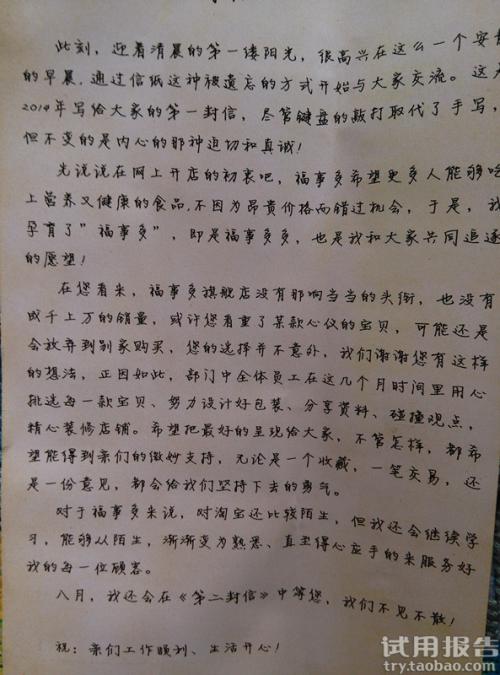 此刻，迎着清晨的第一缕阳光，很高兴在这么一个安
的早晨，通过信纸这种被遗忘的方式开始与大家交流。这
2014年写给大家的第一封信，尽管键盘的敲打取代了手写，
但不变的是内心的那种迫切和真诚！
先说说在网上开店的初衷吧，福事多希望更多人能够吃
上营养又健康的食品，不因为昂贵价格而错过机会，于是，我
孕育了"福事多"，即是福事多多，也是我和大家共同追逐
的愿望！
在您看来，福事多旗舰店没有那响当当的头衔，也没有
成千上万的销量，或许您看重了某款心仪的宝贝，可能还是
会放弃到别家购买，您的选择并不意外，我们谢谢您有这样
的想法，正因如此，部门中全体员工在这几个月时间里用心
挑选每一款宝贝、努力设计好包装、分享资料、碰撞观点，
精心装修店铺。希望把最好的呈现给大家，不管怎样，都希
望能得到亲们的微妙支持，无论是一个收藏，一笔交易，还
是一份意见，都会给我们坚持下去的勇气。
对于福事多来说，对淘宝还比较陌生，但我还会继续学
习，能够从陌生，渐渐变为熟悉、直至得心应手的来服务好
我的每一位顾客。
八月，我还会在《第二封信》中等您，我们不见不散！
祝：亲们工作顺利、生活开心！
试用报告
try.taobao.com